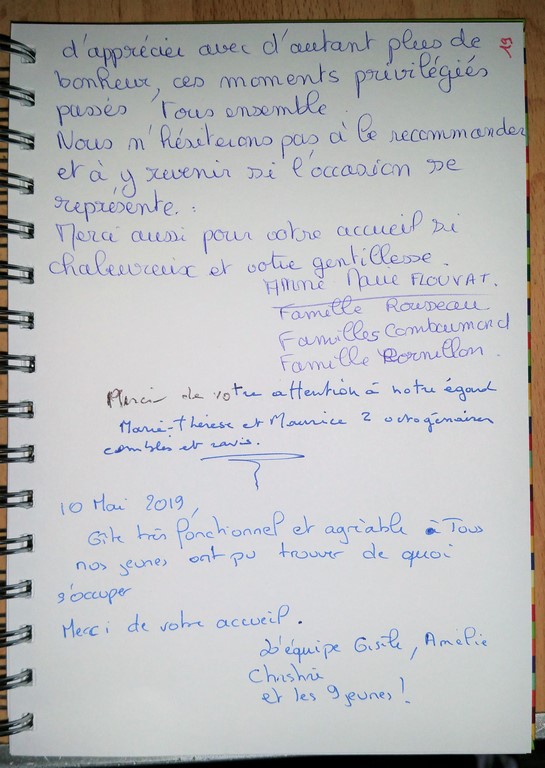 19
d'apprécier avec d'autant plus de
bonheur, ces moments privilégiés
passés Tous ensemble.
Nous n'hésiterons pas à le recommander
et à y revenir si l'occasion se
représente. :
Merci aussi pour votre accueil si
chaleureux et votre gentillesse.
Anne Marie FLOUVAT.
Famille Rousseau
Familles Combaumond
Famille Cornillon.
Merci de votre attention à notre égard
Marie-Thérèse et Maurice 2 octogénaires
comblés et ravis.
10 Mai 2019,
Gîte très fonctionnel et agréable à Tous
nos jeunes ont pu trouver de quoi
s'occuper
Merci de votre accueil.
L'équipe Gisèle, Amélie
Christine
et les 9 jeunes !